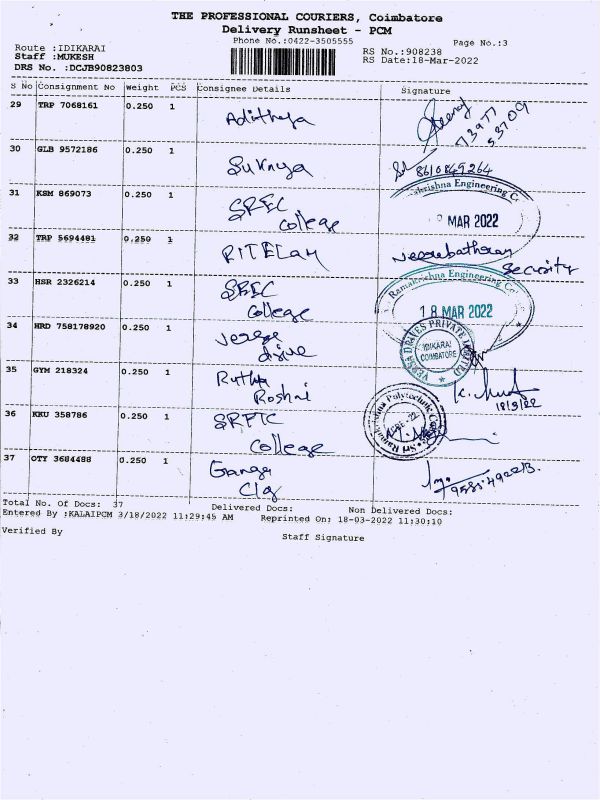 THE PROFESSIONAL COURIERS, Coimbatore
Delivery Runsheet - PCM
Phone No.:0422-3505555
Page No.:3
Route :IDIKARAI
Staff :MUKESH
DRS No. :DCJB90823803
RS No.:908238
RS Date:18-Mar-2022
S No Consignment No Weight PCS Consignee Details Signature
29 TRP 7068161 0.250 1 Adithya
73977
53709
30 GLB 9572186 0.250 1 Sukanya 8610849264
31 KSM 869073 0.250 1 SREC
college
Engineering C
MAR 2022
32 TRP 5694481 0.250 1
Security
33 HSR 2326214 0.250 1 SREC
College
Ramakrishna Engineering Co
18 MAR 2022
34 HRD 758178920 0.250 1
drive
DRIVES PRIVATE LIMITED
IDIKARAI
COIMBATORE
35 GYM 218324 0.250 1
Roshni
18/3/22
36 KKU 358786 0.250 1 SRPTC
College
Ramakrishna Polytechnic
37 OTY 3684488 0.250 1 Ganga
Clg
Total No. Of Docs: 37 Delivered Docs: Non Delivered Docs:
Entered By :KALAIPCM 3/18/2022 11:29:45 AM Reprinted On: 18-03-2022 11:30:10
Verified By Staff Signature